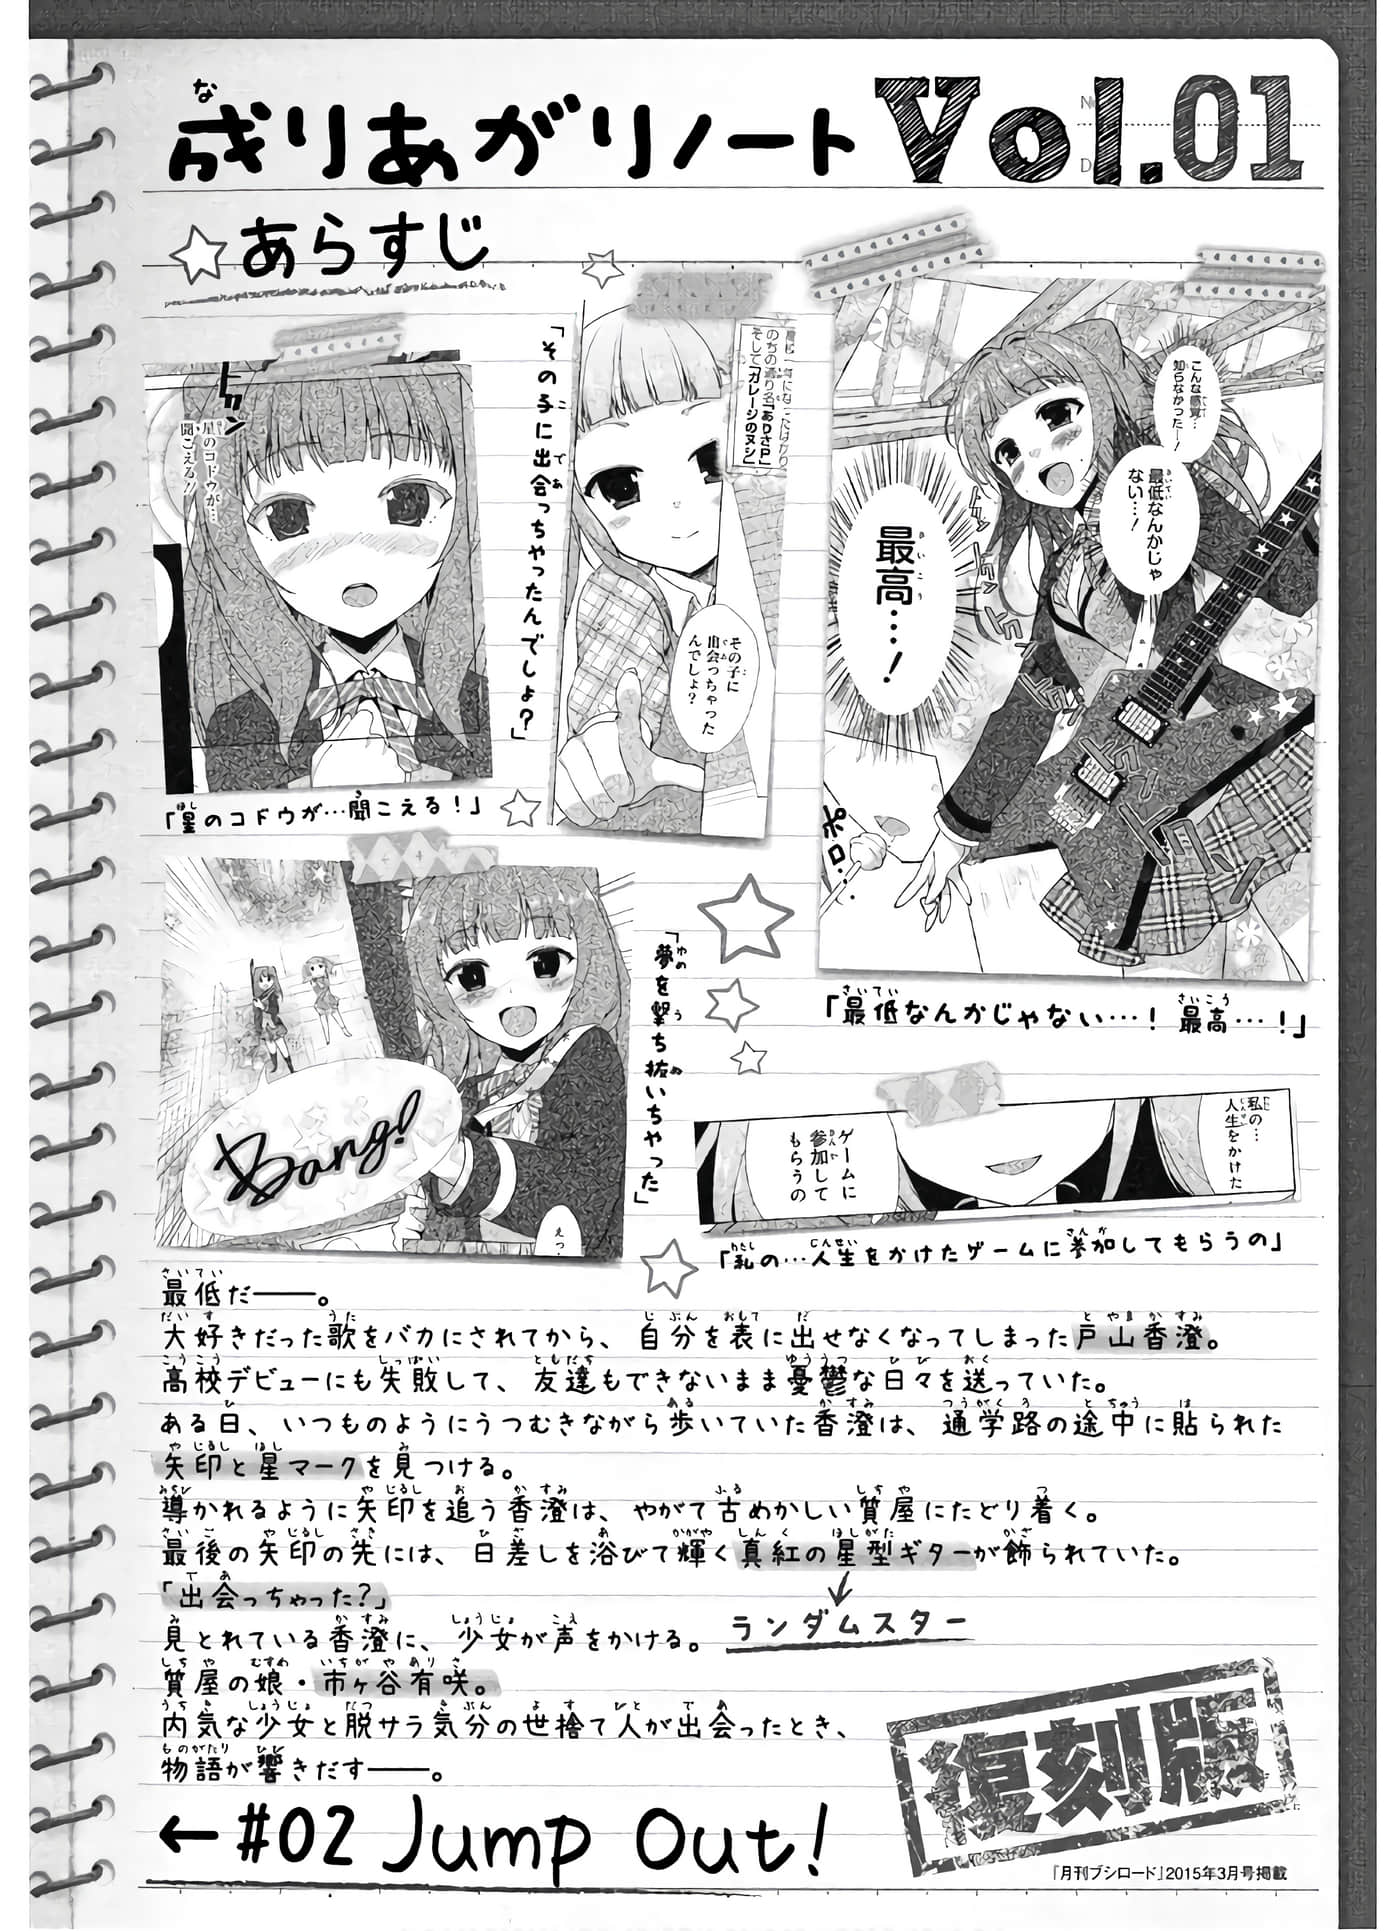 成りあがりノート Vol.01
あらすじ
ドクン
星のコドウが…
聞こえる!!
「星のコドウが…聞こえる!」
「その子に出会っちゃったんでしょ?」
のちの通り名「ありさP」
そして「ガレージのヌシ」
その子に
出会っちゃった
んでしょ?
こんな感覚…
知らなかった…!
最低なんかじゃ
ない…!
最高…!
ポロ…
「最低なんかじゃない…! 最高…!」
Bang!
えっ…
「夢を撃ち抜いちゃった」
私の…
人生をかけた
ゲームに
参加して
もらうの
「私の…人生をかけたゲームに参加してもらうの」
最低だ――。
大好きだった歌をバカにされてから、自分を表に出せなくなってしまった戸山香澄。
高校デビューにも失敗して、友達もできないまま憂鬱な日々を送っていた。
ある日、いつものようにうつむきながら歩いていた香澄は、通学路の途中に貼られた
矢印と星マークを見つける。
導かれるように矢印を追う香澄は、やがて古めかしい質屋にたどり着く。
最後の矢印の先には、日差しを浴びて輝く真紅の星型ギターが飾られていた。
「出会っちゃった?」
ランダムスター
見とれている香澄に、少女が声をかける。
質屋の娘・市ヶ谷有咲。
内気な少女と脱サラ気分の世捨て人が出会ったとき、
物語が響きだす――。
←#02 Jump Out!
復刻版
『月刊ブシロード』2015年3月号掲載